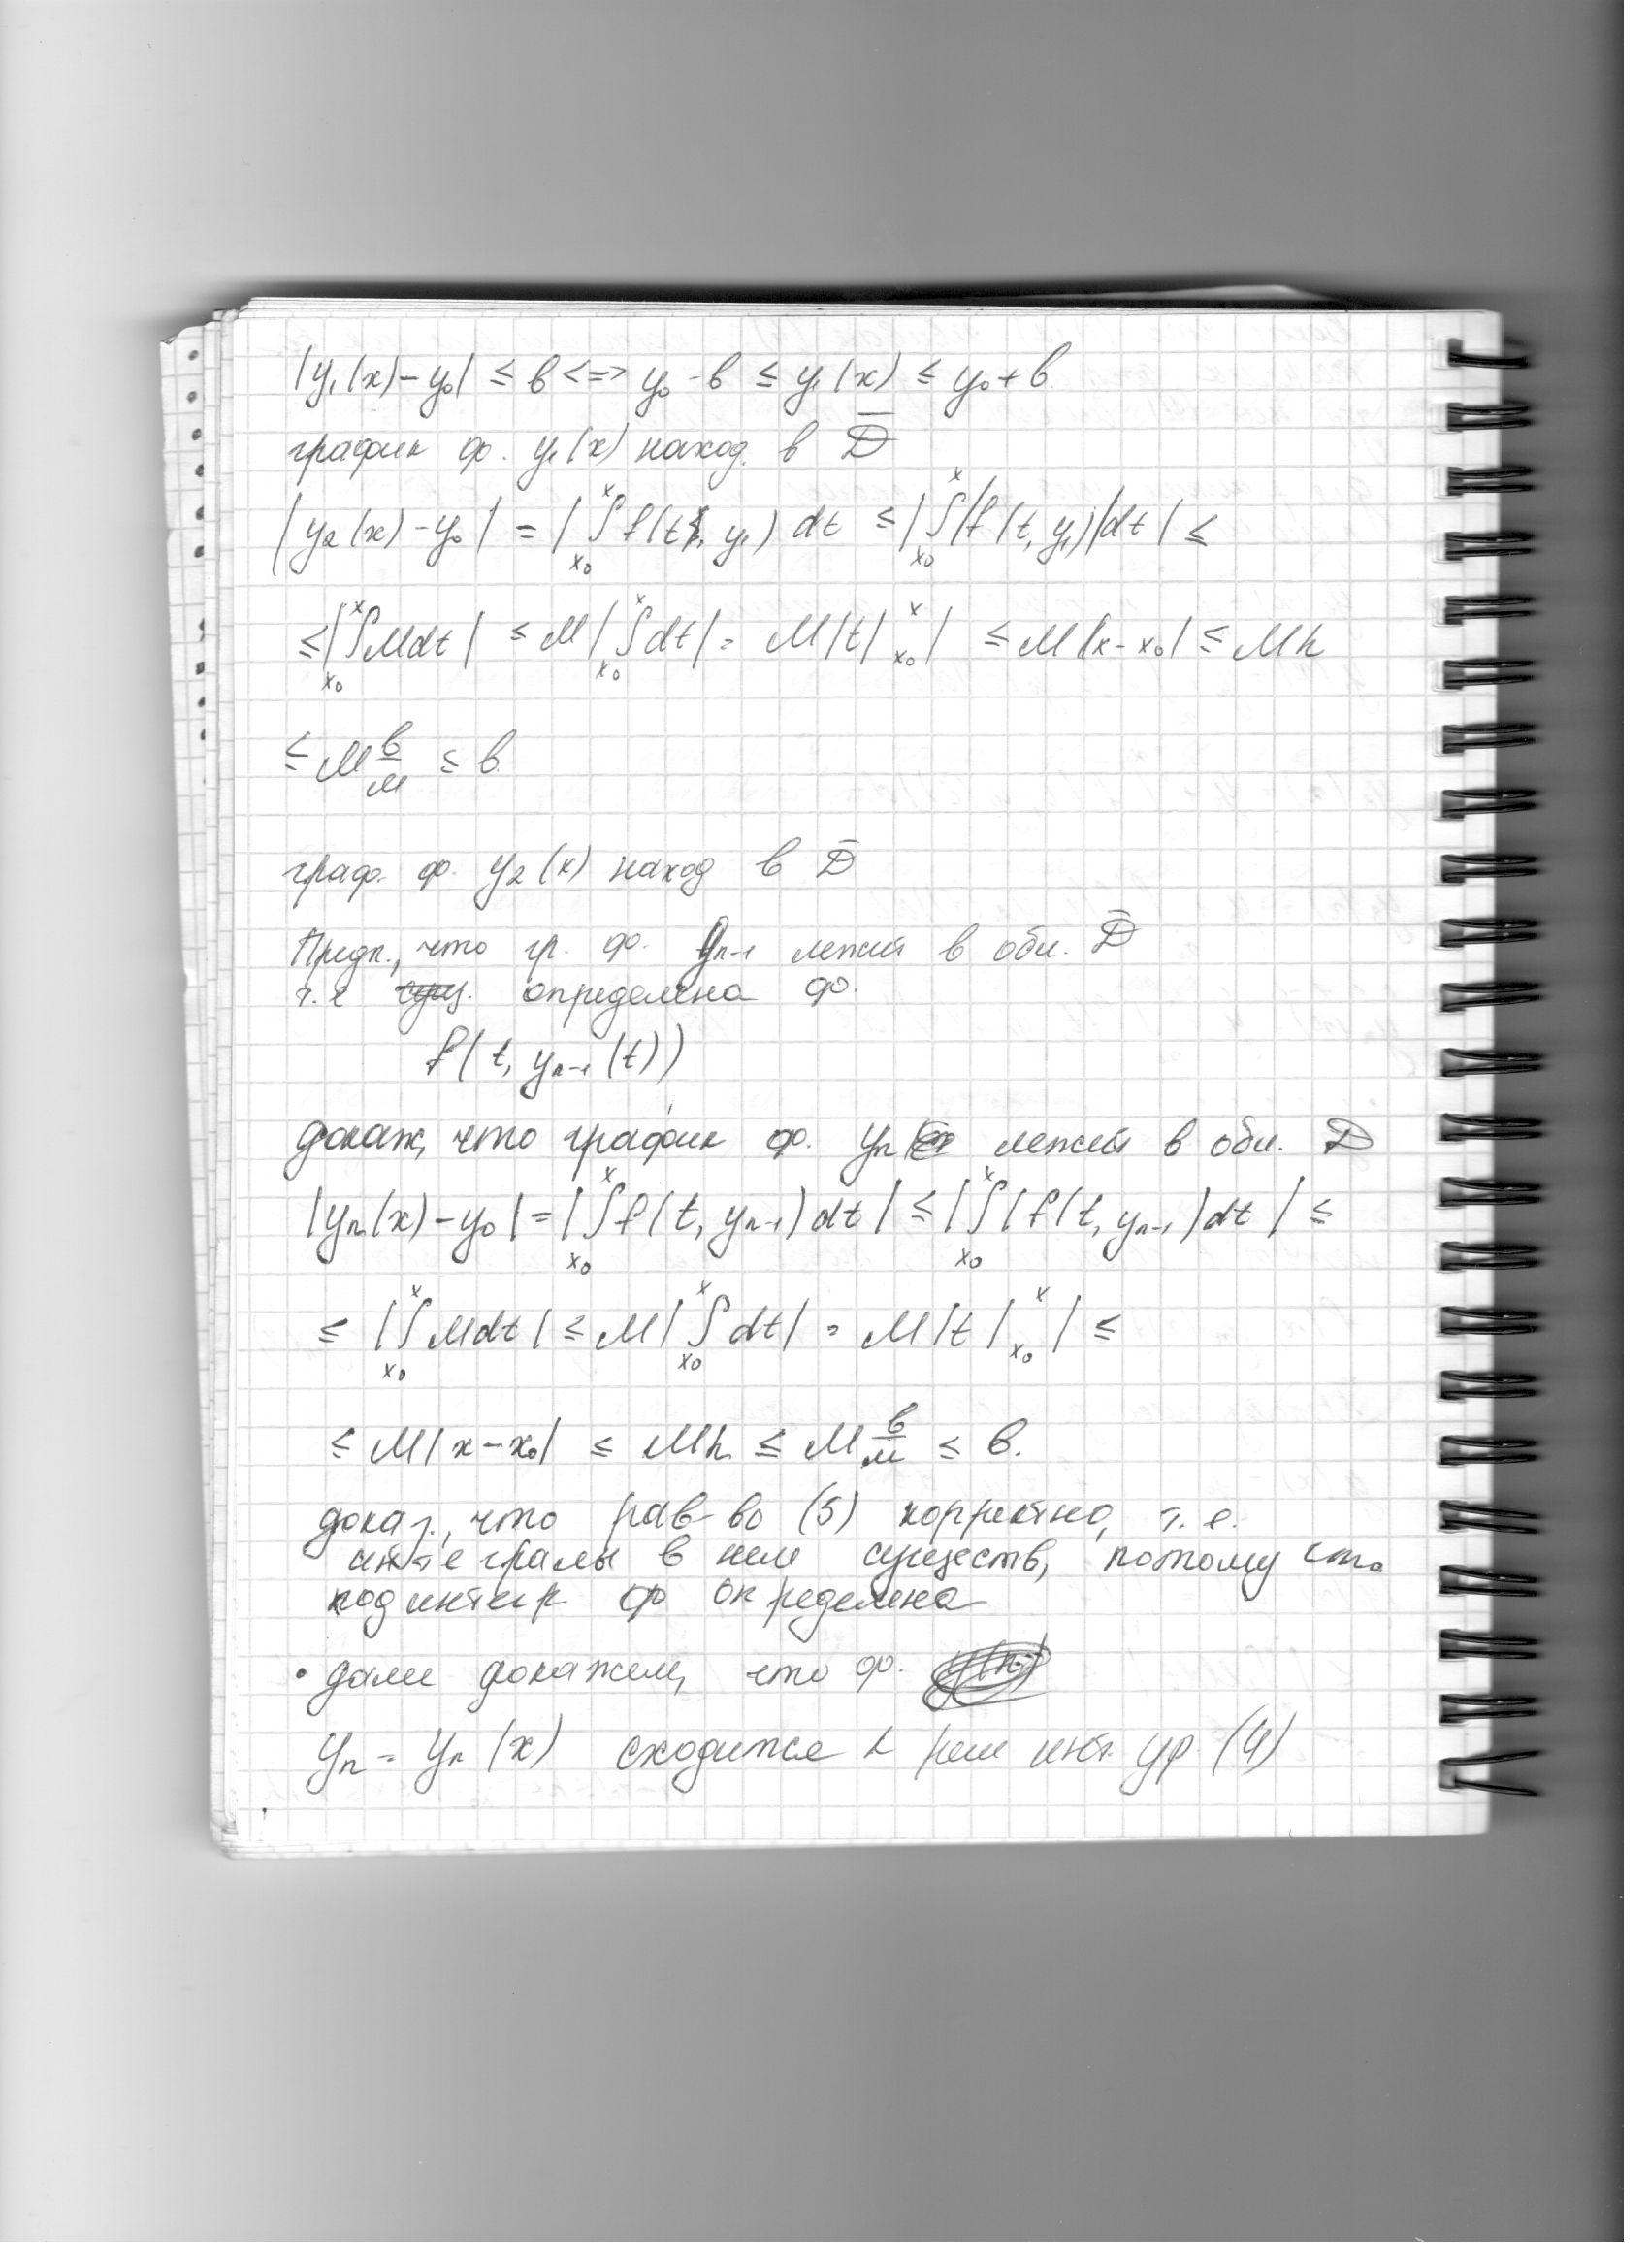 |y₁(x)-y₀| ≤ в <=> y₀-в ≤ y₁(x) ≤ y₀+в
график ф. y₁(x) наход. в D̄
|y₂(x)-y₀| = |∫_{x₀}^{x} f(t, y₁) dt ≤ |∫_{x₀}^{x} |f(t, y₁)|dt| ≤
≤|∫_{x₀}^{x} Mdt| ≤ M|∫_{x₀}^{x} dt| = M|t|_{x₀}^{x}| ≤ M|x-x₀| ≤ Mh
≤ M в/м ≤ в
граф. ф. y₂(x) наход в D̄
Предп., что гр. ф. yₙ₋₁ лежит в обл. D̄
т.е сущ. определена ф.
f(t, yₙ₋₁(t))
докаж, что график ф. yₙ лежит в обл. D
|yₙ(x)-y₀| = |∫_{x₀}^{x} f(t, yₙ₋₁)dt| ≤ |∫_{x₀}^{x} |f(t, yₙ₋₁)dt| ≤
≤ |∫_{x₀}^{x} Mdt| ≤ M|∫_{x₀}^{x} dt| = M|t|_{x₀}^{x}| ≤
≤ M|x-x₀| ≤ Mh ≤ M в/м ≤ в.
доказ., что рав-во (5) корректно, т.е.
интегралы в нем существ, потому что
подинтегр ф определена
• дале докажем, что ф.
yₙ = yₙ(x) сходится к реш инт. ур. (4)